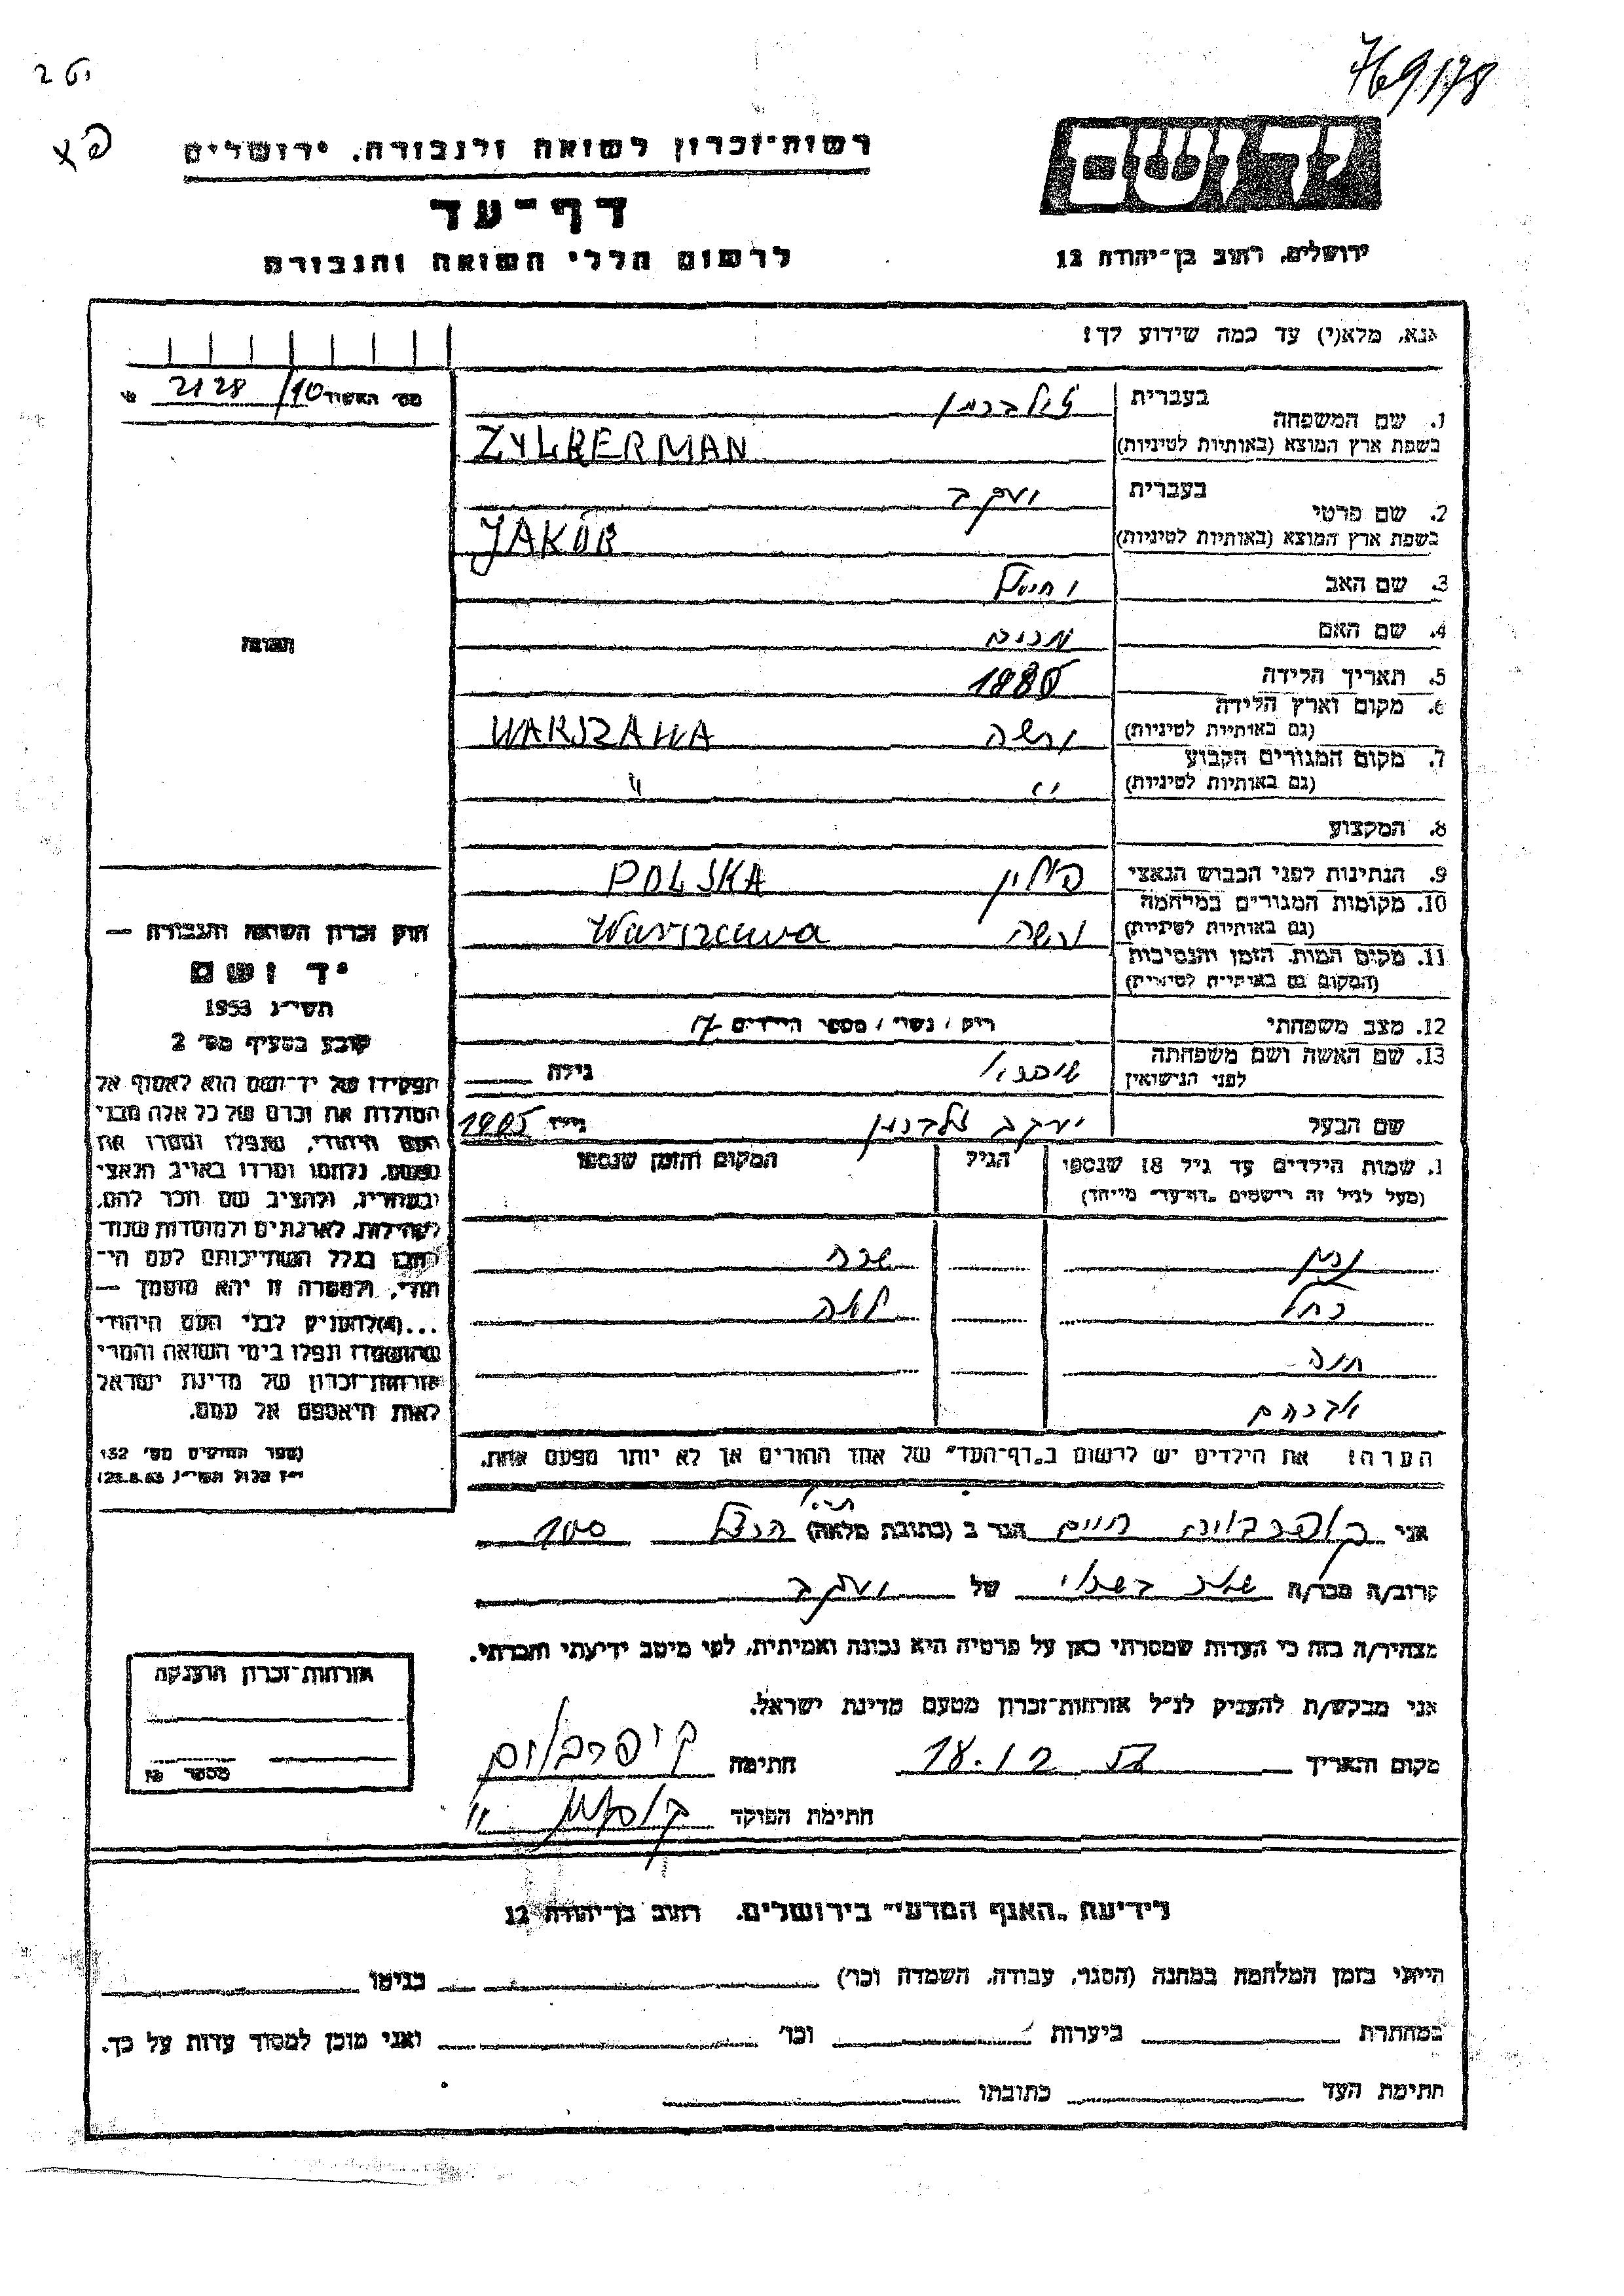 769/178
רשות-זכרון לשואה ולגבורה, ירושלים
דף-עד
לרשום חללי השואה והגבורה
ירושלים, רחוב בן-יהודה 12
אנא, מלא(י) עד כמה שידוע לך:
מס׳ האשור 10/ 2128
1. שם המשפחה
בעברית זילברמן
בשפת ארץ המוצא (באותיות לטיניות) ZYLBERMAN
2. שם פרטי
בעברית יעקב
בשפת ארץ המוצא (באותיות לטיניות) JAKÓB
3. שם האב
4. שם האם
5. תאריך הלידה
6. מקום וארץ הלידה
(גם באותיות לטיניות) ורשה WARSZAWA
7. מקום המגורים הקבוע
(גם באותיות לטיניות) " "
8. המקצוע
9. הנתינות לפני הכבוש הנאצי פולין POLSKA
10. מקומות המגורים במלחמה
(גם באותיות לטיניות) ורשה Warszawa
11. מקום המות, הזמן והנסיבות
(המקום גם באותיות לטיניות)
12. מצב משפחתי רוק / נשוי / מספר הילדים
13. שם האשה ושם משפחתה
לפני הנישואין
גילה
שם הבעל יעקב זילברמן גילו
תמונה
חוק זכרון השואה והגבורה —
יד ושם
תשי״ג 1953
קובע בסעיף מס׳ 2
תפקידו של יד-ושם הוא לאסוף אל
המולדת את זכרם של כל אלה מבני
העם היהודי, שנפלו ומסרו את
נפשם, נלחמו ומרדו באויב הנאצי
ובעוזריו, ולהציב שם וזכר להם,
לקהילות, לארגונים ולמוסדות שנח־
רבו בגלל השתייכותם לעם הי־
הודי, ולמטרה זו יהא מוסמך —
...(4)להעניק לבני העם היהודי
שהושמדו ונפלו בימי השואה והמרי
אזרחות-זכרון של מדינת ישראל
לאות היאספם אל עמם.
(ספר החוקים מס׳ 132
י״ז אלול תשי״ג 28.8.53)
1. שמות הילדים עד גיל 18 שנספו
(מעל לגיל זה רושמים „דף-עד״ מיוחד)
הגיל
המקום והזמן שנספו
נתן שרה
רחל לאה
חנה
אברהם
הערה: את הילדים יש לרשום ב„דף-העד״ של אחד ההורים אך לא יותר מפעם אחת.
אני חיים הגר ב (כתובת מלאה) הרצל 100
קרוב/ה מכר/ה של יעקב
מצהיר/ה בזה כי העדות שמסרתי כאן על פרטיה היא נכונה ואמיתית, לפי מיטב ידיעתי והכרתי.
אני מבקש/ת להעניק לנ״ל אזרחות-זכרון מטעם מדינת ישראל.
מקום ותאריך 18.12 חתימה
חתימת הפוקד
אזרחות-זכרון הוענקה
מספר
לידיעת „האגף המדעי״ בירושלים, רחוב בן-יהודה 12
הייתי בזמן המלחמה במחנה (הסגר, עבודה, השמדה וכו׳) בגיטו
במחתרת ביערות וכו׳ ואני מוכן למסור עדות על כך.
חתימת העד כתובתו